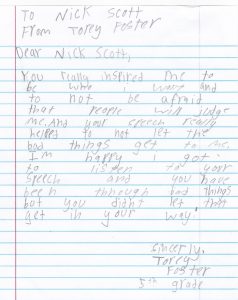 To Nick Scott
From Torey Foster
Dear Nick Scott,
You really inspired me to
be who I want and
to not be afraid
that people will judge
me. And your speech really
helped to not let the
bad things get to me.
I'm happy I got
to listen to your
speech and you have
been through bad things
but you didnt let that
get in your way!
Sincerly,
Torey
Foster
5th grade